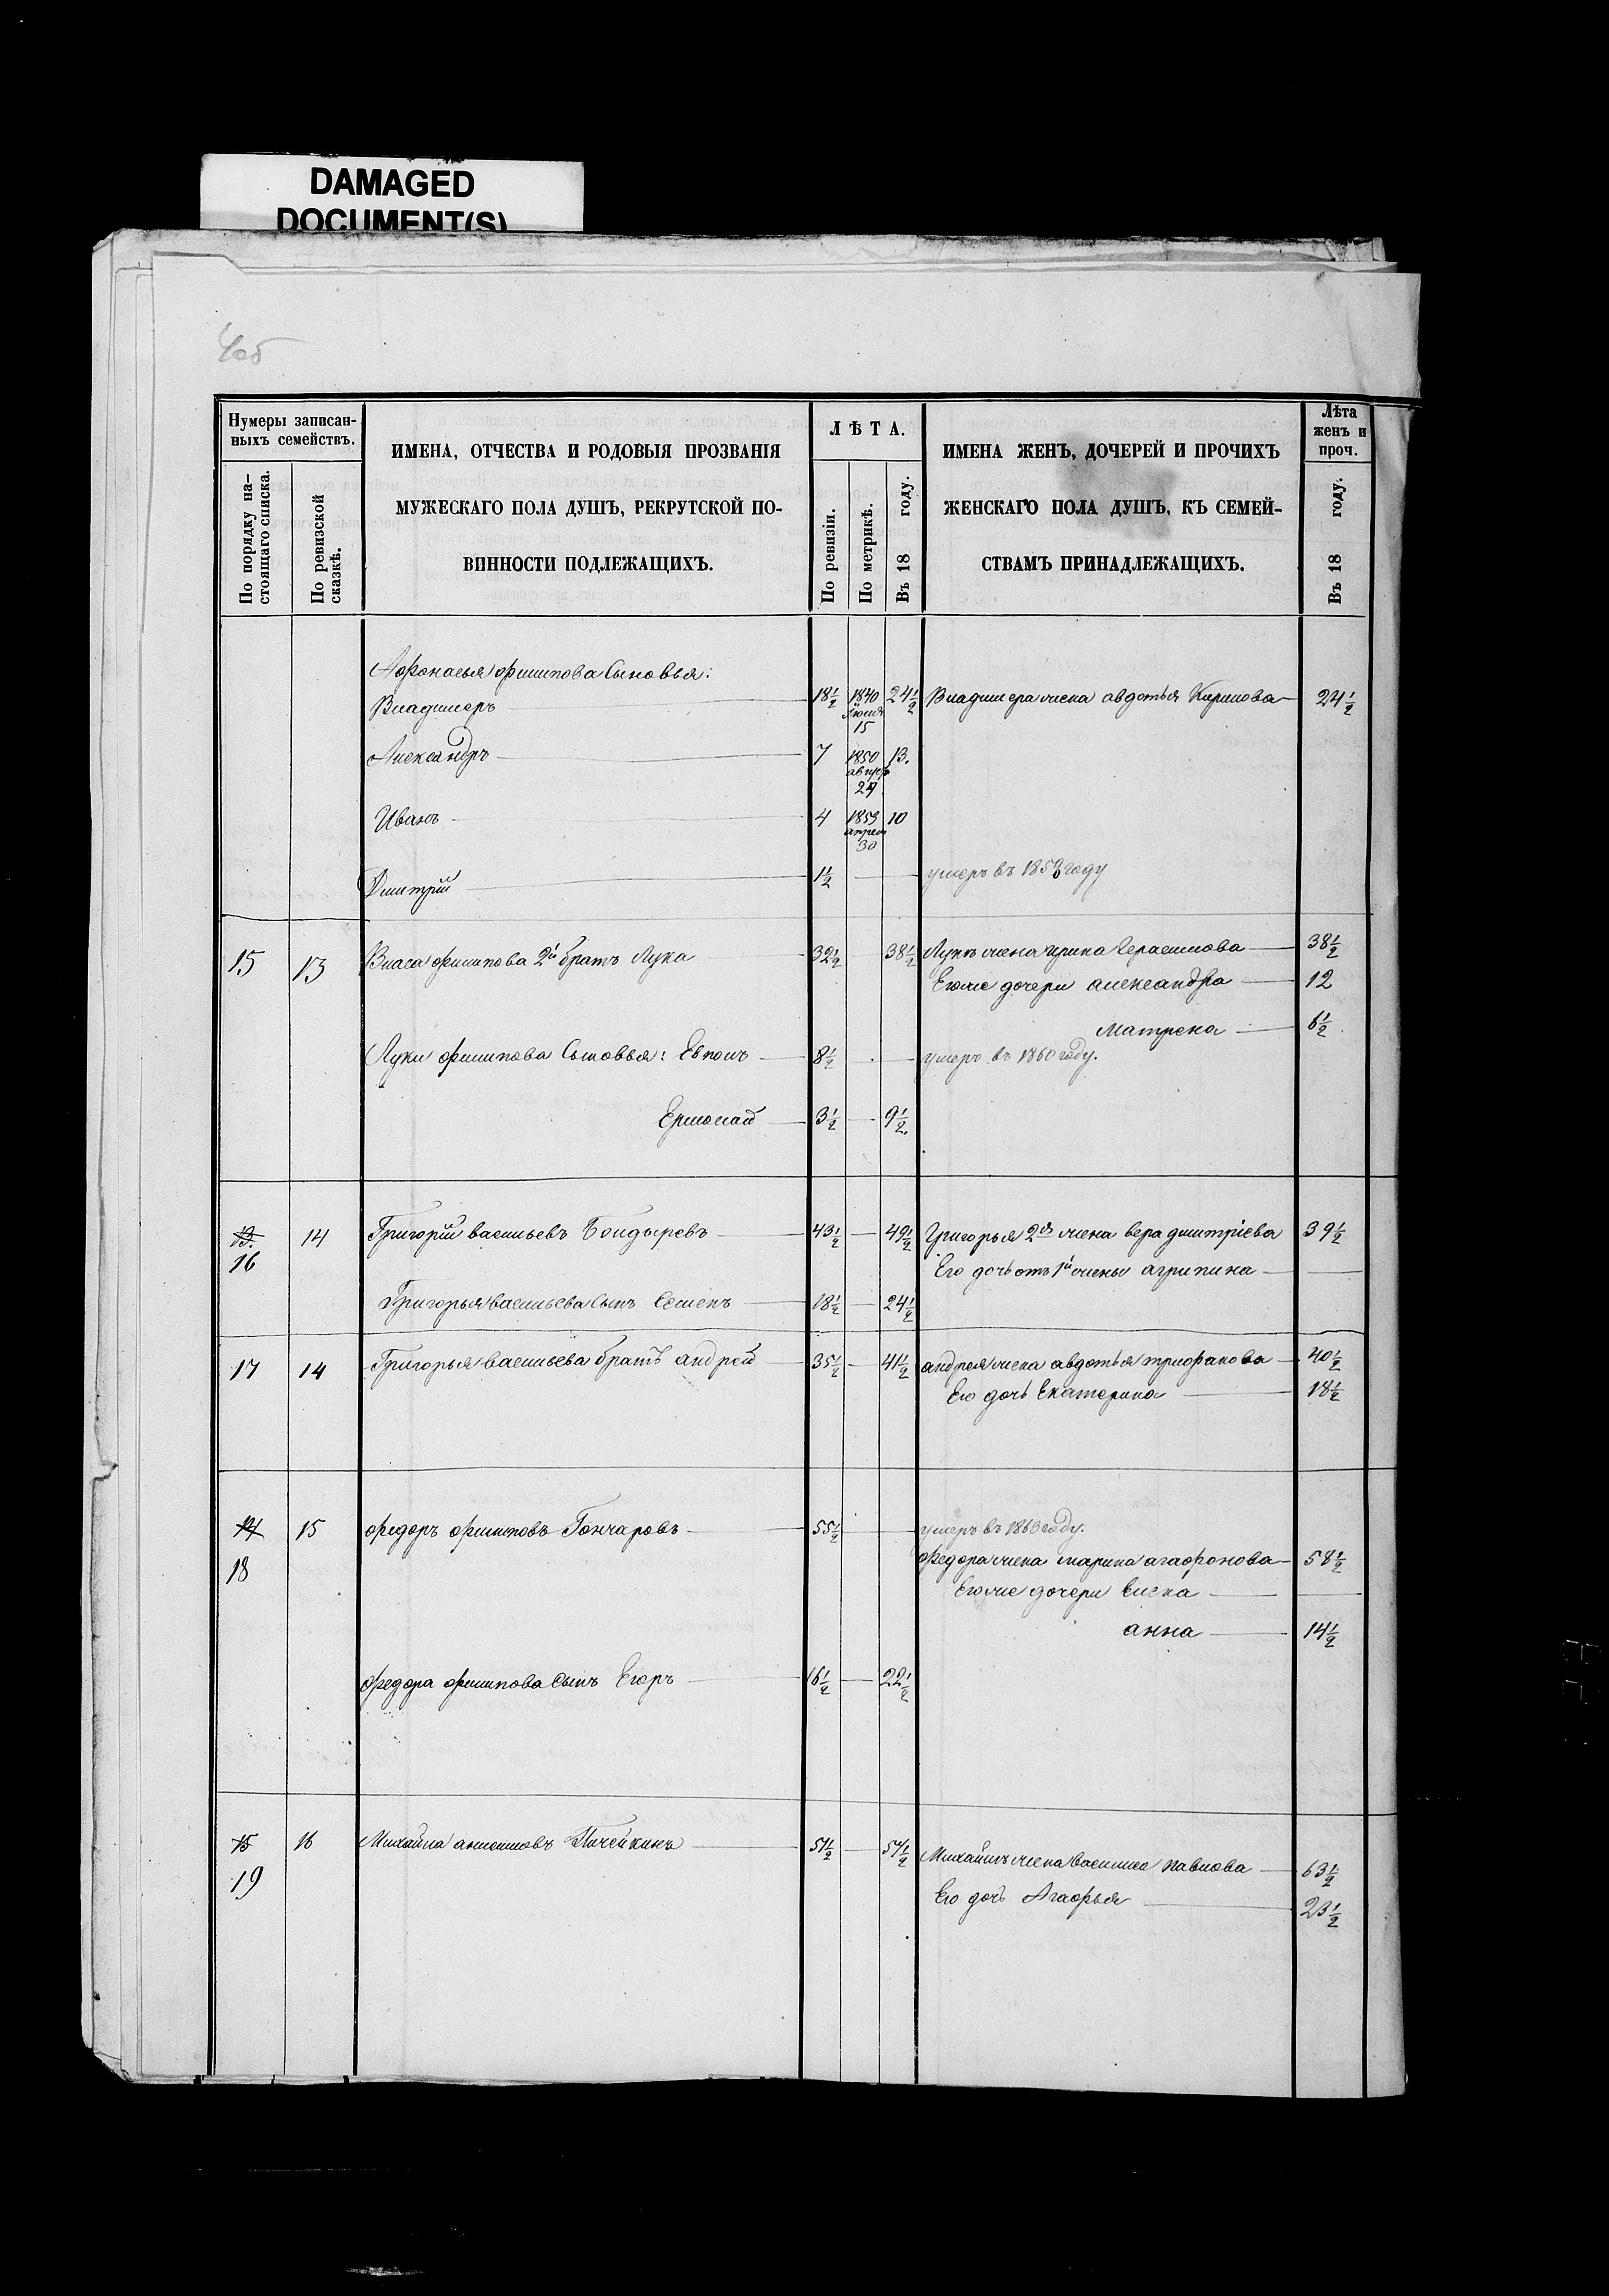 DAMAGED
DOCUMENT(S)
4об
Нумеры записан-
ныхъ семействъ.
По порядку на-
стоящаго списка.
По ревизской
сказкѣ.
ИМЕНА, ОТЧЕСТВА И РОДОВЫЯ ПРОЗВАНІЯ
МУЖЕСКАГО ПОЛА ДУШЪ, РЕКРУТСКОЙ ПО-
ВИННОСТИ ПОДЛЕЖАЩИХЪ.
ЛѢТА.
По ревизіи.
По метрикѣ.
Въ 18 году.
ИМЕНА ЖЕНЪ, ДОЧЕРЕЙ И ПРОЧИХЪ
ЖЕНСКАГО ПОЛА ДУШЪ, КЪ СЕМЕЙ-
СТВАМЪ ПРИНАДЛЕЖАЩИХЪ.
Лѣта
женъ и
проч.
Въ 18 году.
Афонасья филипова Сыновья:
Владимеръ 18½ 1840 24½ Владимера жена авдотья Кирилова 24½
15
Александръ 7 1850 13.
август
27
Иванъ 4 1853 10
апреля
30
Дмитрій 1½ умеръ въ 1858 году
15 13 Власа филипова 2й братъ Лука 32½ 38½ Луки жена ирина Герасимова 38½
Егоже дочери александра 12
матрена 6½
Луки филипова Сыновья: Евполъ 8½ умеръ въ 1860 году.
Ермолай 3½ 9½.
13. 14 Григорій васильевъ Болдыревъ 43½ 49½ Григорья 2я жена вера дмитріева 39½
16
Его дочь отъ 1й жены агрипина
Григорья васильева Сынъ Семенъ 18½ 24½
17 14 Григорья васильева братъ андрей 35½ 41½ андрея жена авдотья трифанова 40½
Его дочь Екатерина 18½
14 15 федоръ филиповъ Гончаровъ 55½ умеръ въ 1863 году.
18
федора жена марина агафонова 58½
Егоже дочери Елена
анна 14½
федора филипова Сынъ Егоръ 16½ 22½
15 16 Михайла анисимовъ Почейкинъ 51½ 57½
19
Михайлы жена василиса павлова 63½
Его дочь Агафья 23½